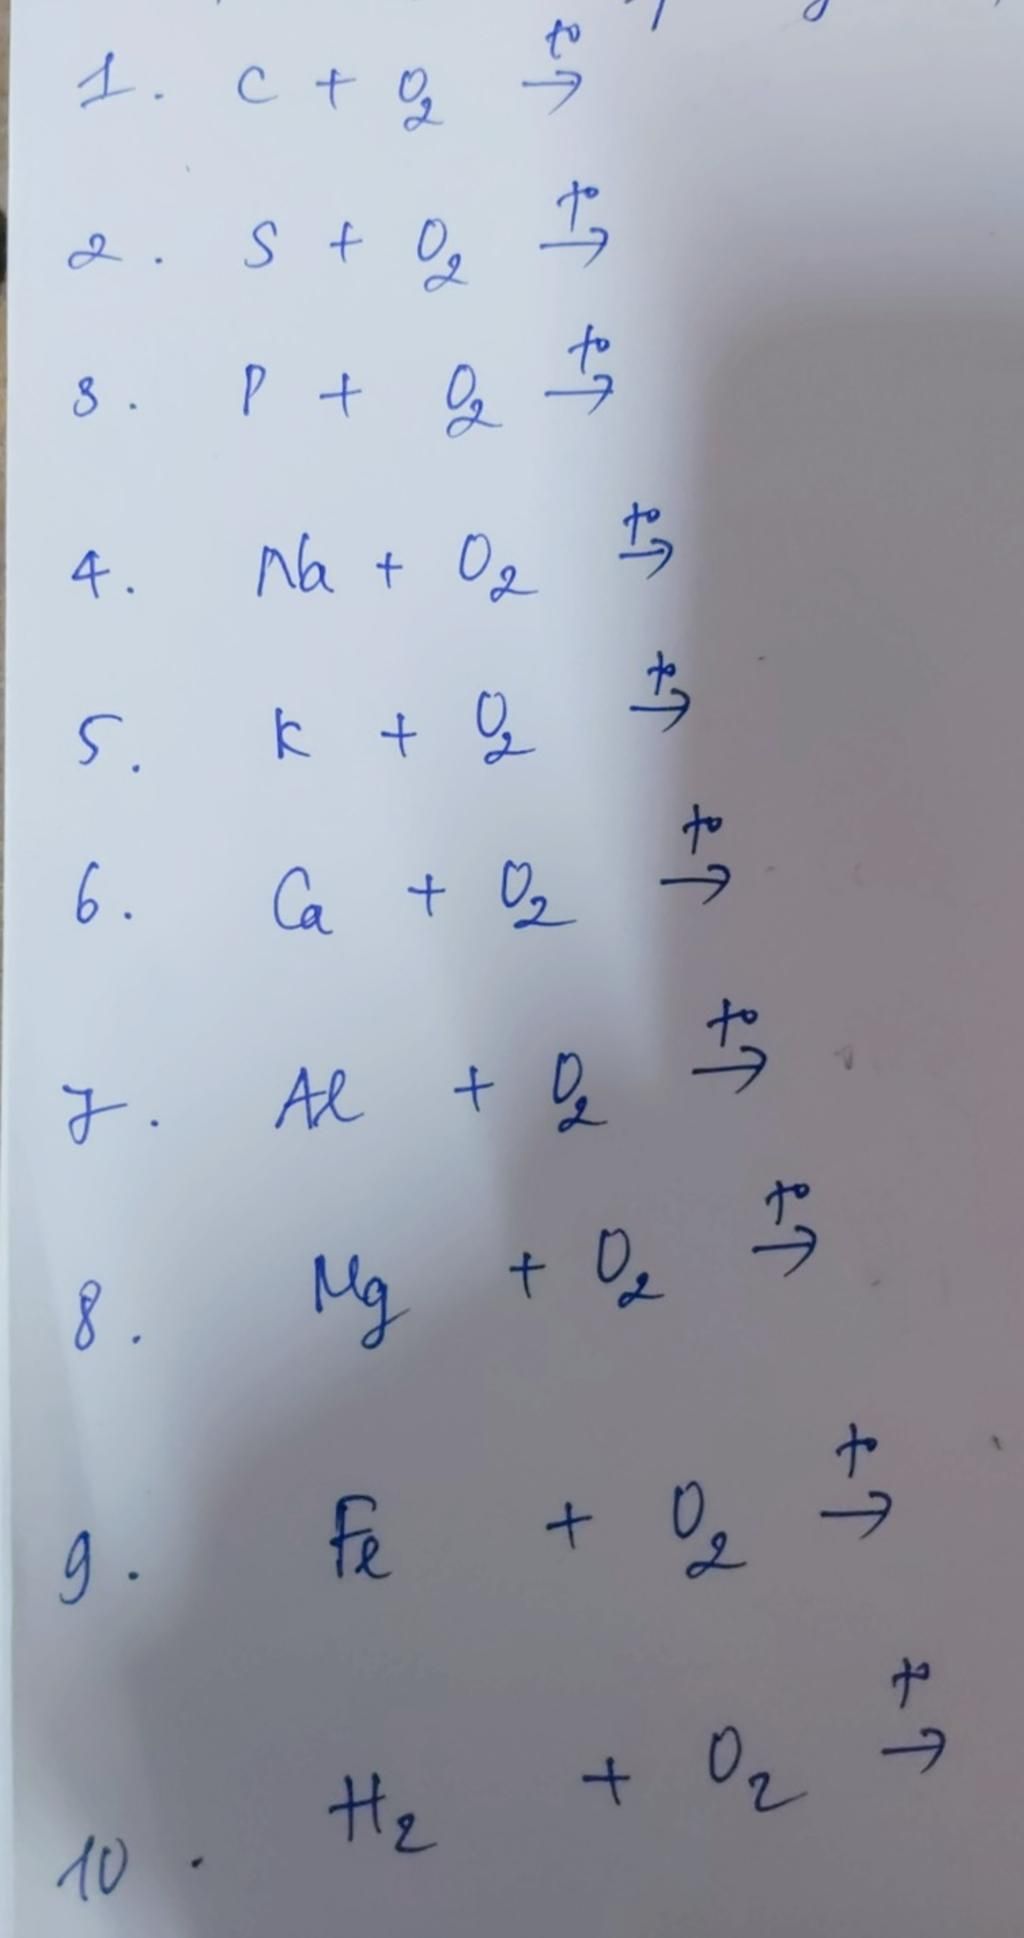 1. C + O₂ t° →
2. S + O₂ t° →
3. P + O₂ t° →
4. Na + O₂ t° →
5. K + O₂ t° →
6. Ca + O₂ t° →
7. Al + O₂ t° →
8. Mg + O₂ t° →
9. Fe + O₂ t° →
10. H₂ + O₂ t° →